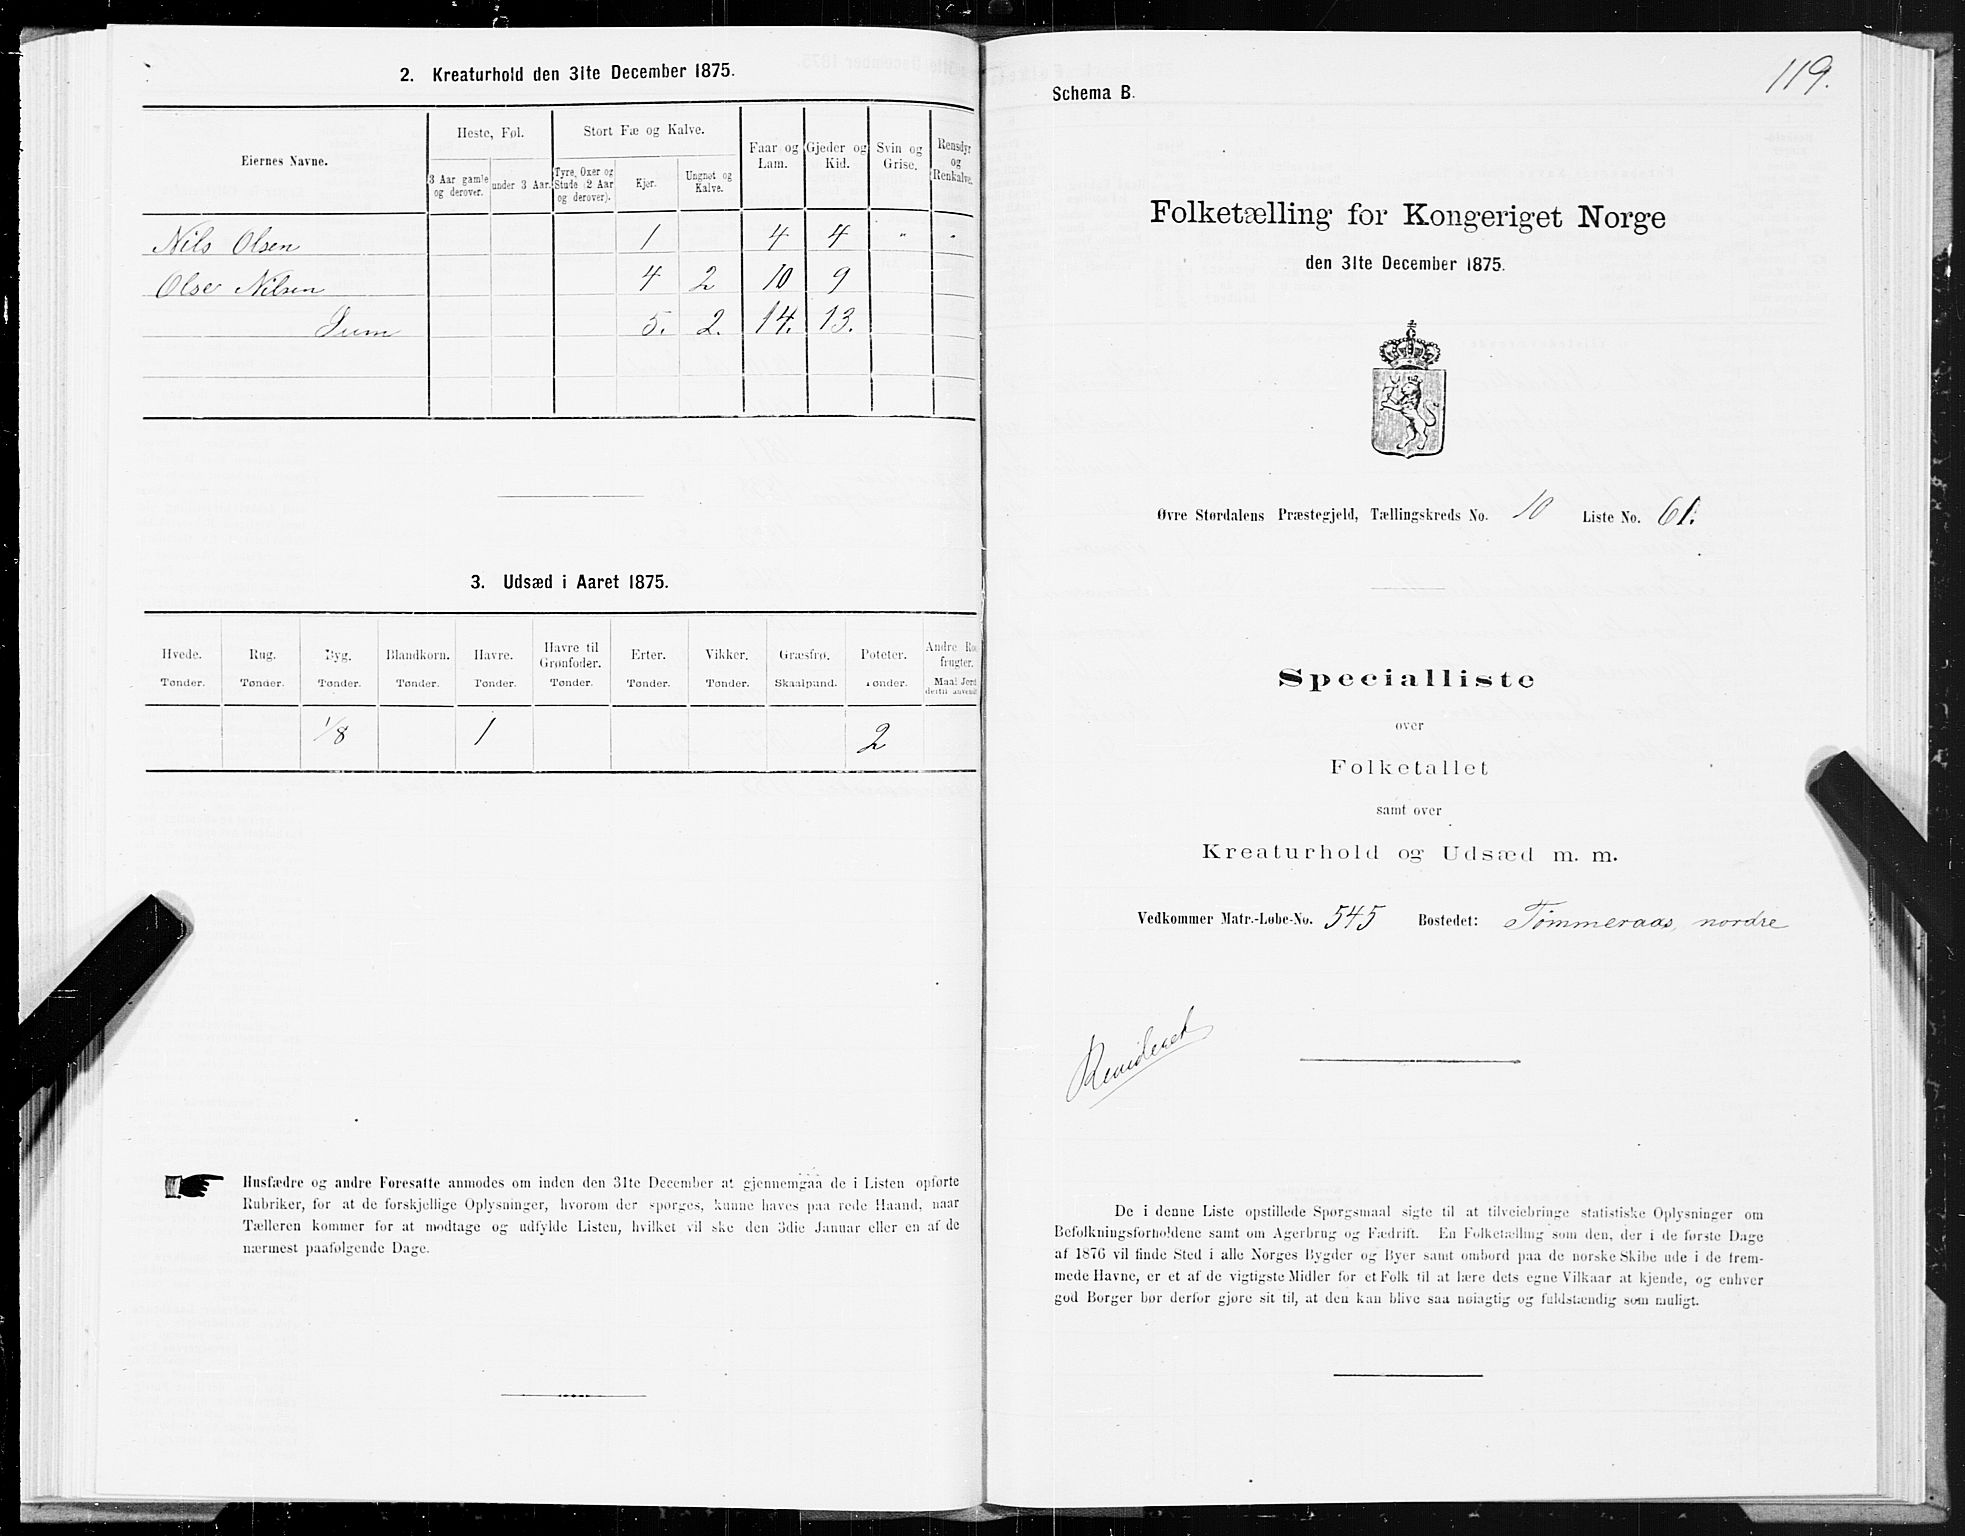 2. Kreaturhold den 31te December 1875.
Eiernes Navne.
Heste, Føl.
Stort Fæ og Kalve.
Faar og Lam.
Gjeder og Kid.
Svin og Grise.
Rensdyr og Renkalve.
3 Aar gamle og derover.
under 3 Aar.
Tyre, Oxer og Stude (2 Aar og derover).
Kjør.
Ungnøt og Kalve.
Nils Olsen 1 4 4 " "
Olse Nilsen 4 2 10 9
Sum 5. 2. 14. 13.
3. Udsæd i Aaret 1875.
Hvede. Rug. Byg. Blandkorn. Havre. Havre til Grønfoder. Erter. Vikker. Græsfrø. Poteter. Andre Ro frugter.
Tønder. Tønder. Tønder. Tønder. Tønder. Tønder. Tønder. Tønder. Skaalpund. Tønder. Maal Jord dertil anvendt
1/8 1 2
Husfædre og andre Foresatte anmodes om inden den 31te December at gjennemgaa de i Listen opførte
Rubriker, for at de forskjellige Oplysninger, hvorom der spørges, kunne haves paa rede Haand, naar
Tælleren kommer for at modtage og udfylde Listen, hvilket vil ske den 3die Januar eller en af de
nærmest paafølgende Dage.
119.
Schema B.
Folketælling for Kongeriget Norge
den 31te December 1875.
Øvre Størdalens Præstegjeld, Tællingskreds No. 10 Liste No. 61.
Specialliste
over
Folketallet
samt over
Kreaturhold og Udsæd m. m.
Vedkommer Matr.-Løbe-No. 545 Bostedet: Tømmeraas, nordre
Revideret
De i denne Liste opstillede Spørgsmaal sigte til at tilveiebringe statistiske Oplysninger om
Befolkningsforholdene samt om Agerbrug og Fædrift. En Folketælling som den, der i de første Dage
af 1876 vil finde Sted i alle Norges Bygder og Byer samt ombord paa de norske Skibe ude i de frem-
mede Havne, er et af de vigtigste Midler for et Folk til at lære dets egne Vilkaar at kjende, og enhver
god Borger bør derfor gjøre sit til, at den kan blive saa nøiagtig og fuldstændig som muligt.